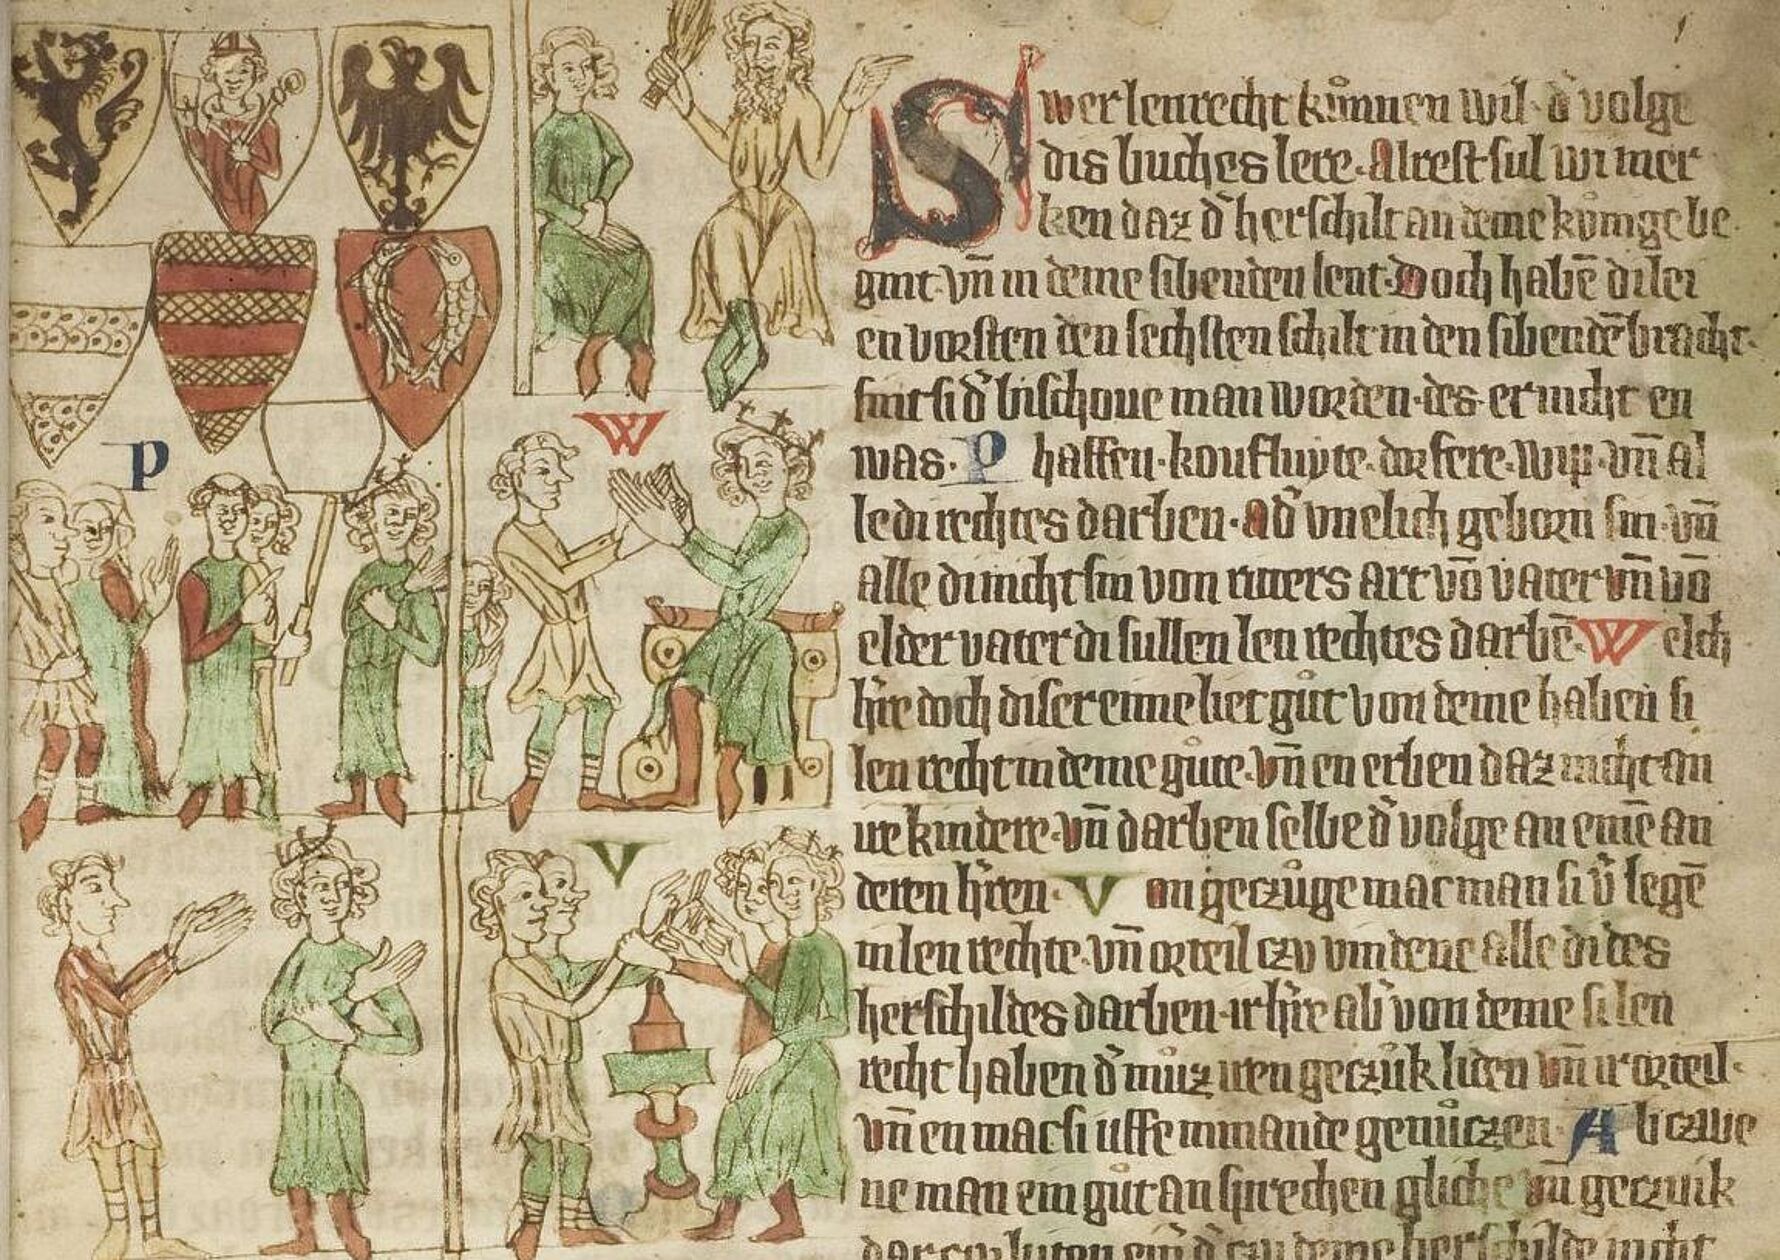 P
W
V
Swer lenrecht kůnnen wil · d̓ volge
dis buches lere · Alrest sul wi mer
ken daz d̓ herschilt an deme kůnige be
gint · vn̄ in deme sibenden lent · Doch habē di lei
en vorsten den sechsten schilt in den sibendē bracht ·
sint si d̓ bischoue man worden · des er nicht en
was · Phaffen · koufluyte · dorfere · wip · vn̄ al
le di rechtes darben · ad̓ vnelich geborn sin · vn̄
alle di nicht sin von ritters art vō vater vn̄ vō
elder vater di sullen len rechtes darbē · Welch
h̓re doch diser eime liet gůt von deme haben si
len recht in deme gůte · vn̄ en erben daz nicht an
ire kindere · vn̄ darben selbe d̓ volge an eime an
deren h̓ren · Von geczůge mac man si v̓ legē
in len rechte · vn̄ orteil czv vindene alle di des
herschildes darben · ir h̓re ab̓ von deme si len
recht haben d̓ můz iren geczůk liden vn̄ ir orteil ·
vn̄ en mac si uffe nimande genůczen · Ab czwe
ne man ein gůt an sprechen gliche vn̄ geczuik